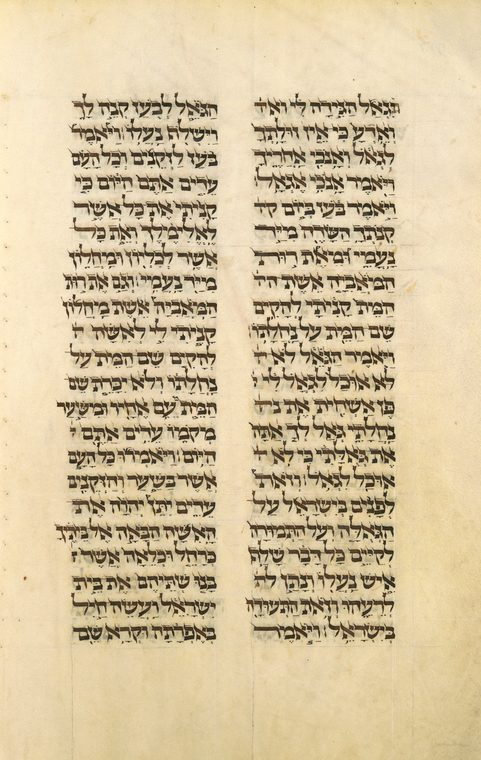 תגאל הגידה לי
ואדע כי אין זולתך
לגאל ואנכי אחריך
ויאמר אנכי אגאל
ויאמר בעז ביום ק
קנתך השדה מיד
נעמי ומאת רות
המאביה אשת ה
המת קניתי להקים
שם המת על נחלתו
ויאמר הגאל לא
לא אוכל לגאל לי
פן אשחית את נח
נחלתי גאל לך אתה
את גאלתי כי לא
אוכל לגאל וזאת
לפנים בישראל על
הגאלה ועל התמורה
לקיים כל דבר שלף
איש נעלו ונתן ל
לרעהו וזאת התעודה
בישראל ויאמר
הגאל לבעז קנה לך
וישלף נעלו ויאמר
בעז לזקנים וכל העם
עדים אתם היום כי
קניתי את כל אשר
לאלימלך ואת כל
אשר לכליון ומחלון
מיד נעמי וגם את רות
המאביה אשת מחלון
קניתי לי לאשה
להקים שם המת על
נחלתו ולא יכרת שם
המת מעם אחיו ומשער
מקמו עדים אתם
היום ויאמרו כל העם
אשר בשער והזקנים
עדים יתן יהוה את
האשה הבאה אל ביתך
כרחל וכלאה אשר
בנו שתיהם את בית
ישראל ועשה חיל
באפרתה וקרא שם